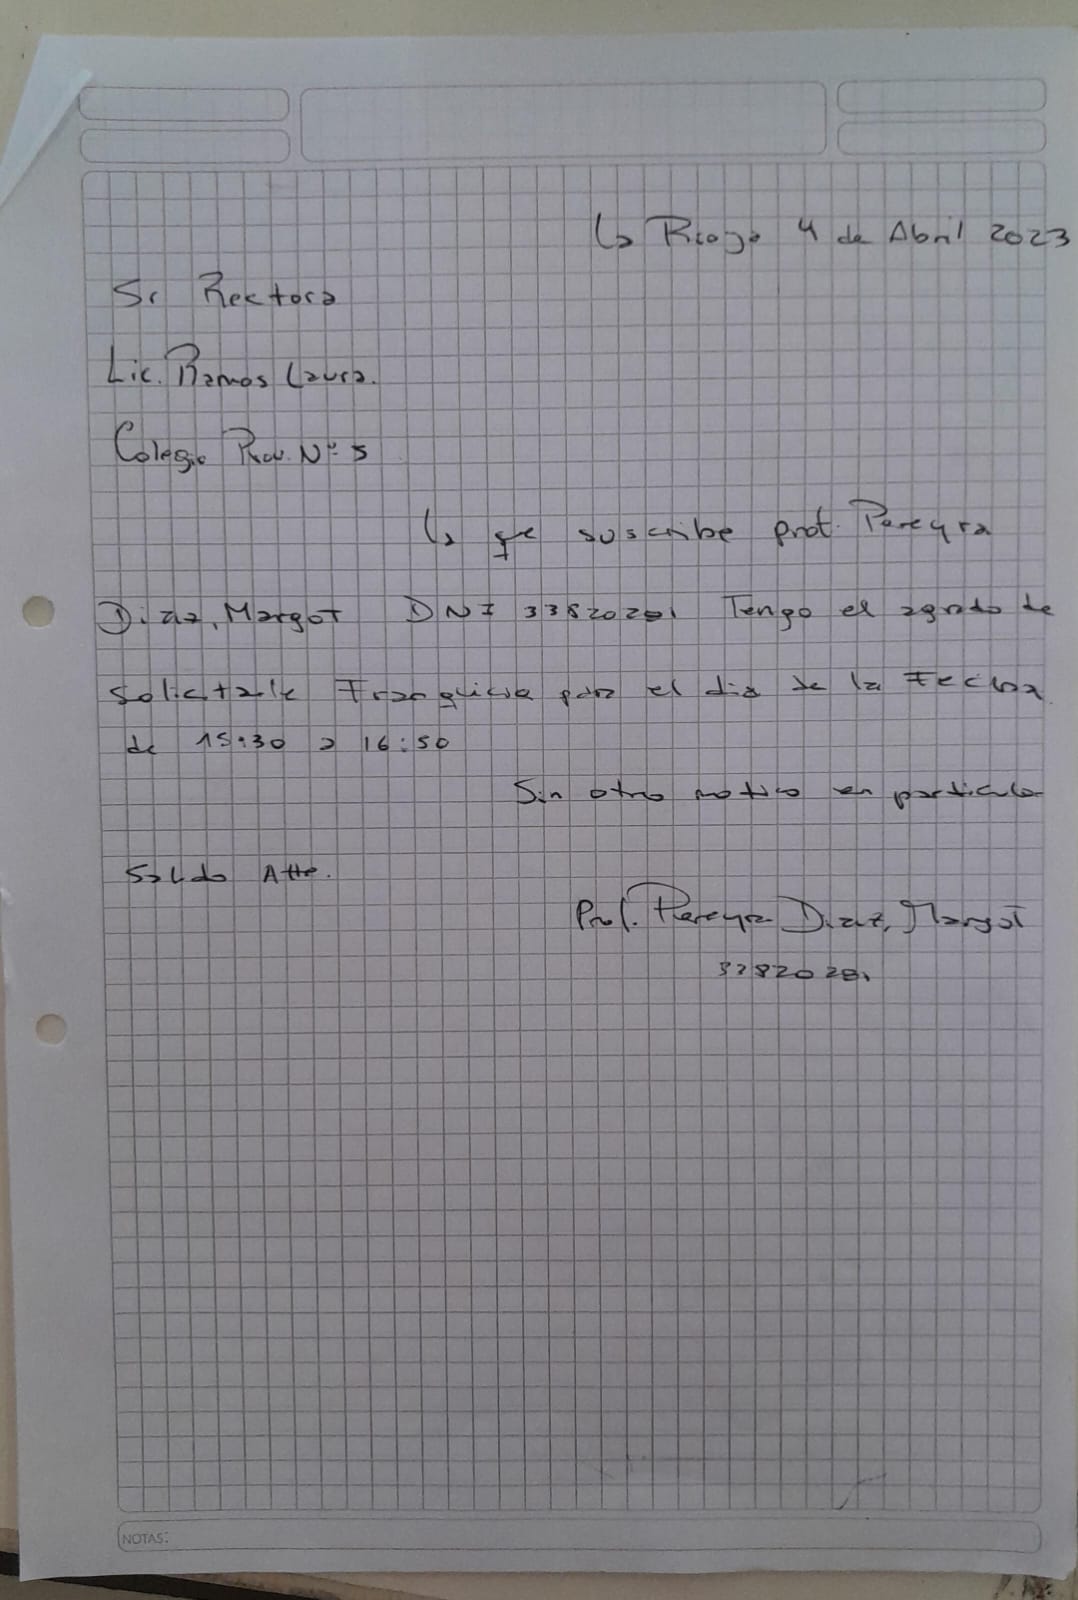 La Rioja 4 de Abril 2023
Sr Rectora
Lic. Ramos Laura.
Colegio Prov. Nº 5
La que suscribe prof. Pereyra
Diaz, Margot DNI 33820281 Tengo el agrado de
solicitarle Franquicia para el dia de la Fecha
de 15:30 a 16:50
Sin otro motivo en particular
Saludo Atte.
Prof. Pereyra Diaz, Margot
33820281
NOTAS: